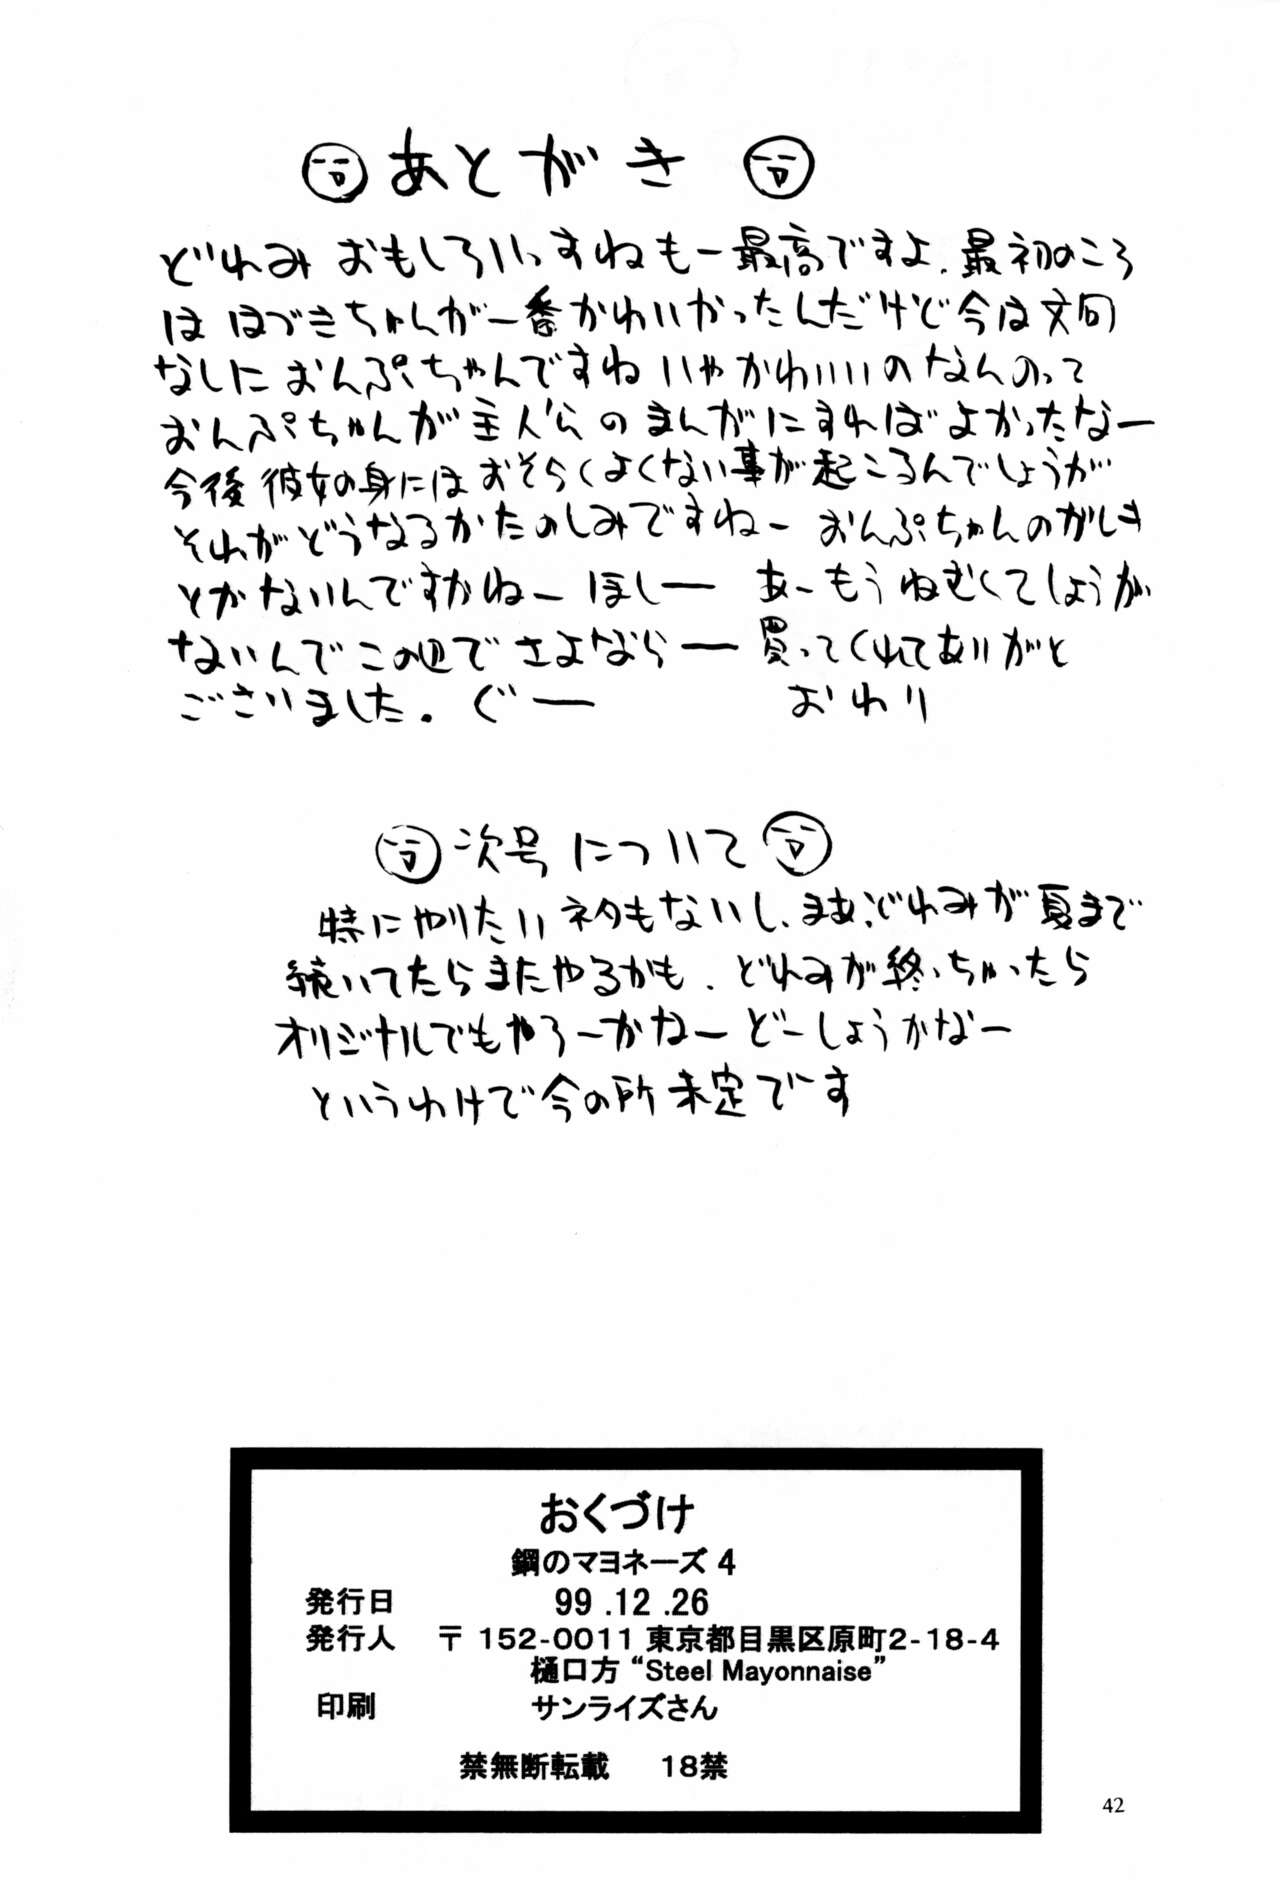 あとがき
どれみ おもしろいっすねもー最高ですよ.最初のころ
は はづきちゃんが一番かわいかったんだけど今は文句
なしにおんぷちゃんですねいやかわいいのなんのって
おんぷちゃんが主人公のまんがにすればよかったなー
今後彼女の身にはおそらくよくない事が起こるんでしょうが
それがどうなるかたのしみですねー おんぷちゃんのがしき
とかないんですかねー ほしー あーもうねむくてしょうが
ないんでこの辺でさよならー 買ってくれてありがと
ございました. ぐー おわり
次号について
特にやりたいネタもないし、まあ、どれみが夏まで
続いてたらまたやるかも、どれみが終っちゃったら
オリジナルでもやろーかなー どーしょうかなー
というわけで今の所未定です
おくづけ
鋼のマヨネーズ 4
発行日 99 .12 .26
発行人 〒 152-0011 東京都目黒区原町2-18-4
樋口方 “Steel Mayonnaise”
印刷 サンライズさん
禁無断転載 18禁
42